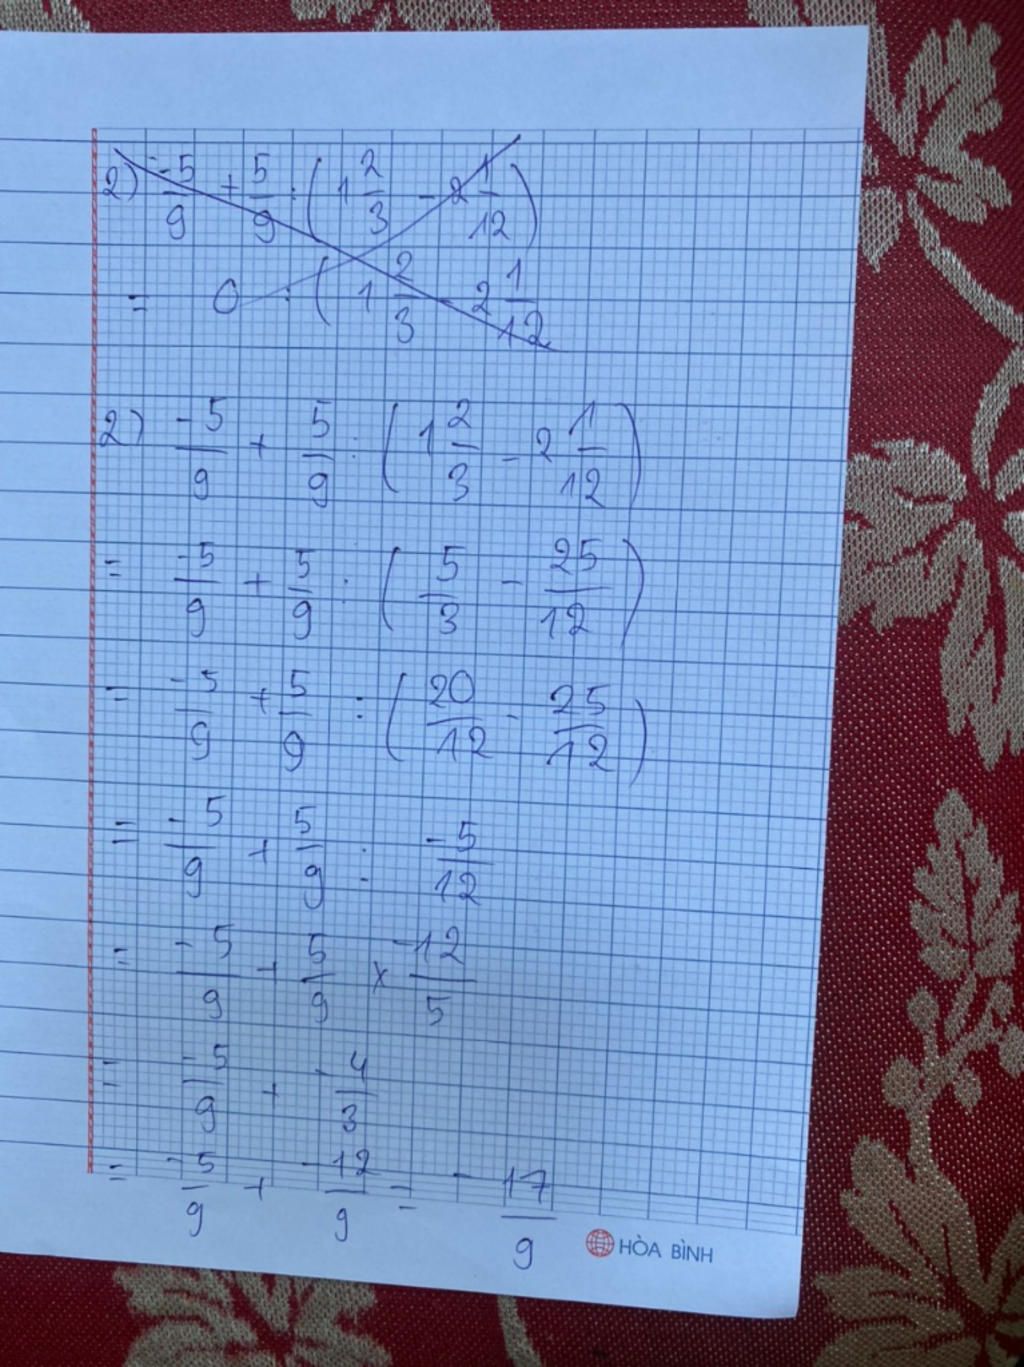 2) -5/9 + 5/9 : (1 2/3 - 2 1/12)
= 0 : (1 2/3 - 2 1/12
2) -5/9 + 5/9 : (1 2/3 - 2 1/12)
= -5/9 + 5/9 : (5/3 - 25/12)
= -5/9 + 5/9 : (20/12 - 25/12)
= -5/9 + 5/9 : -5/12
= -5/9 + 5/9 x -12/5
= -5/9 + -4/3
= -5/9 + -12/9 = -17/9
HÒA BÌNH